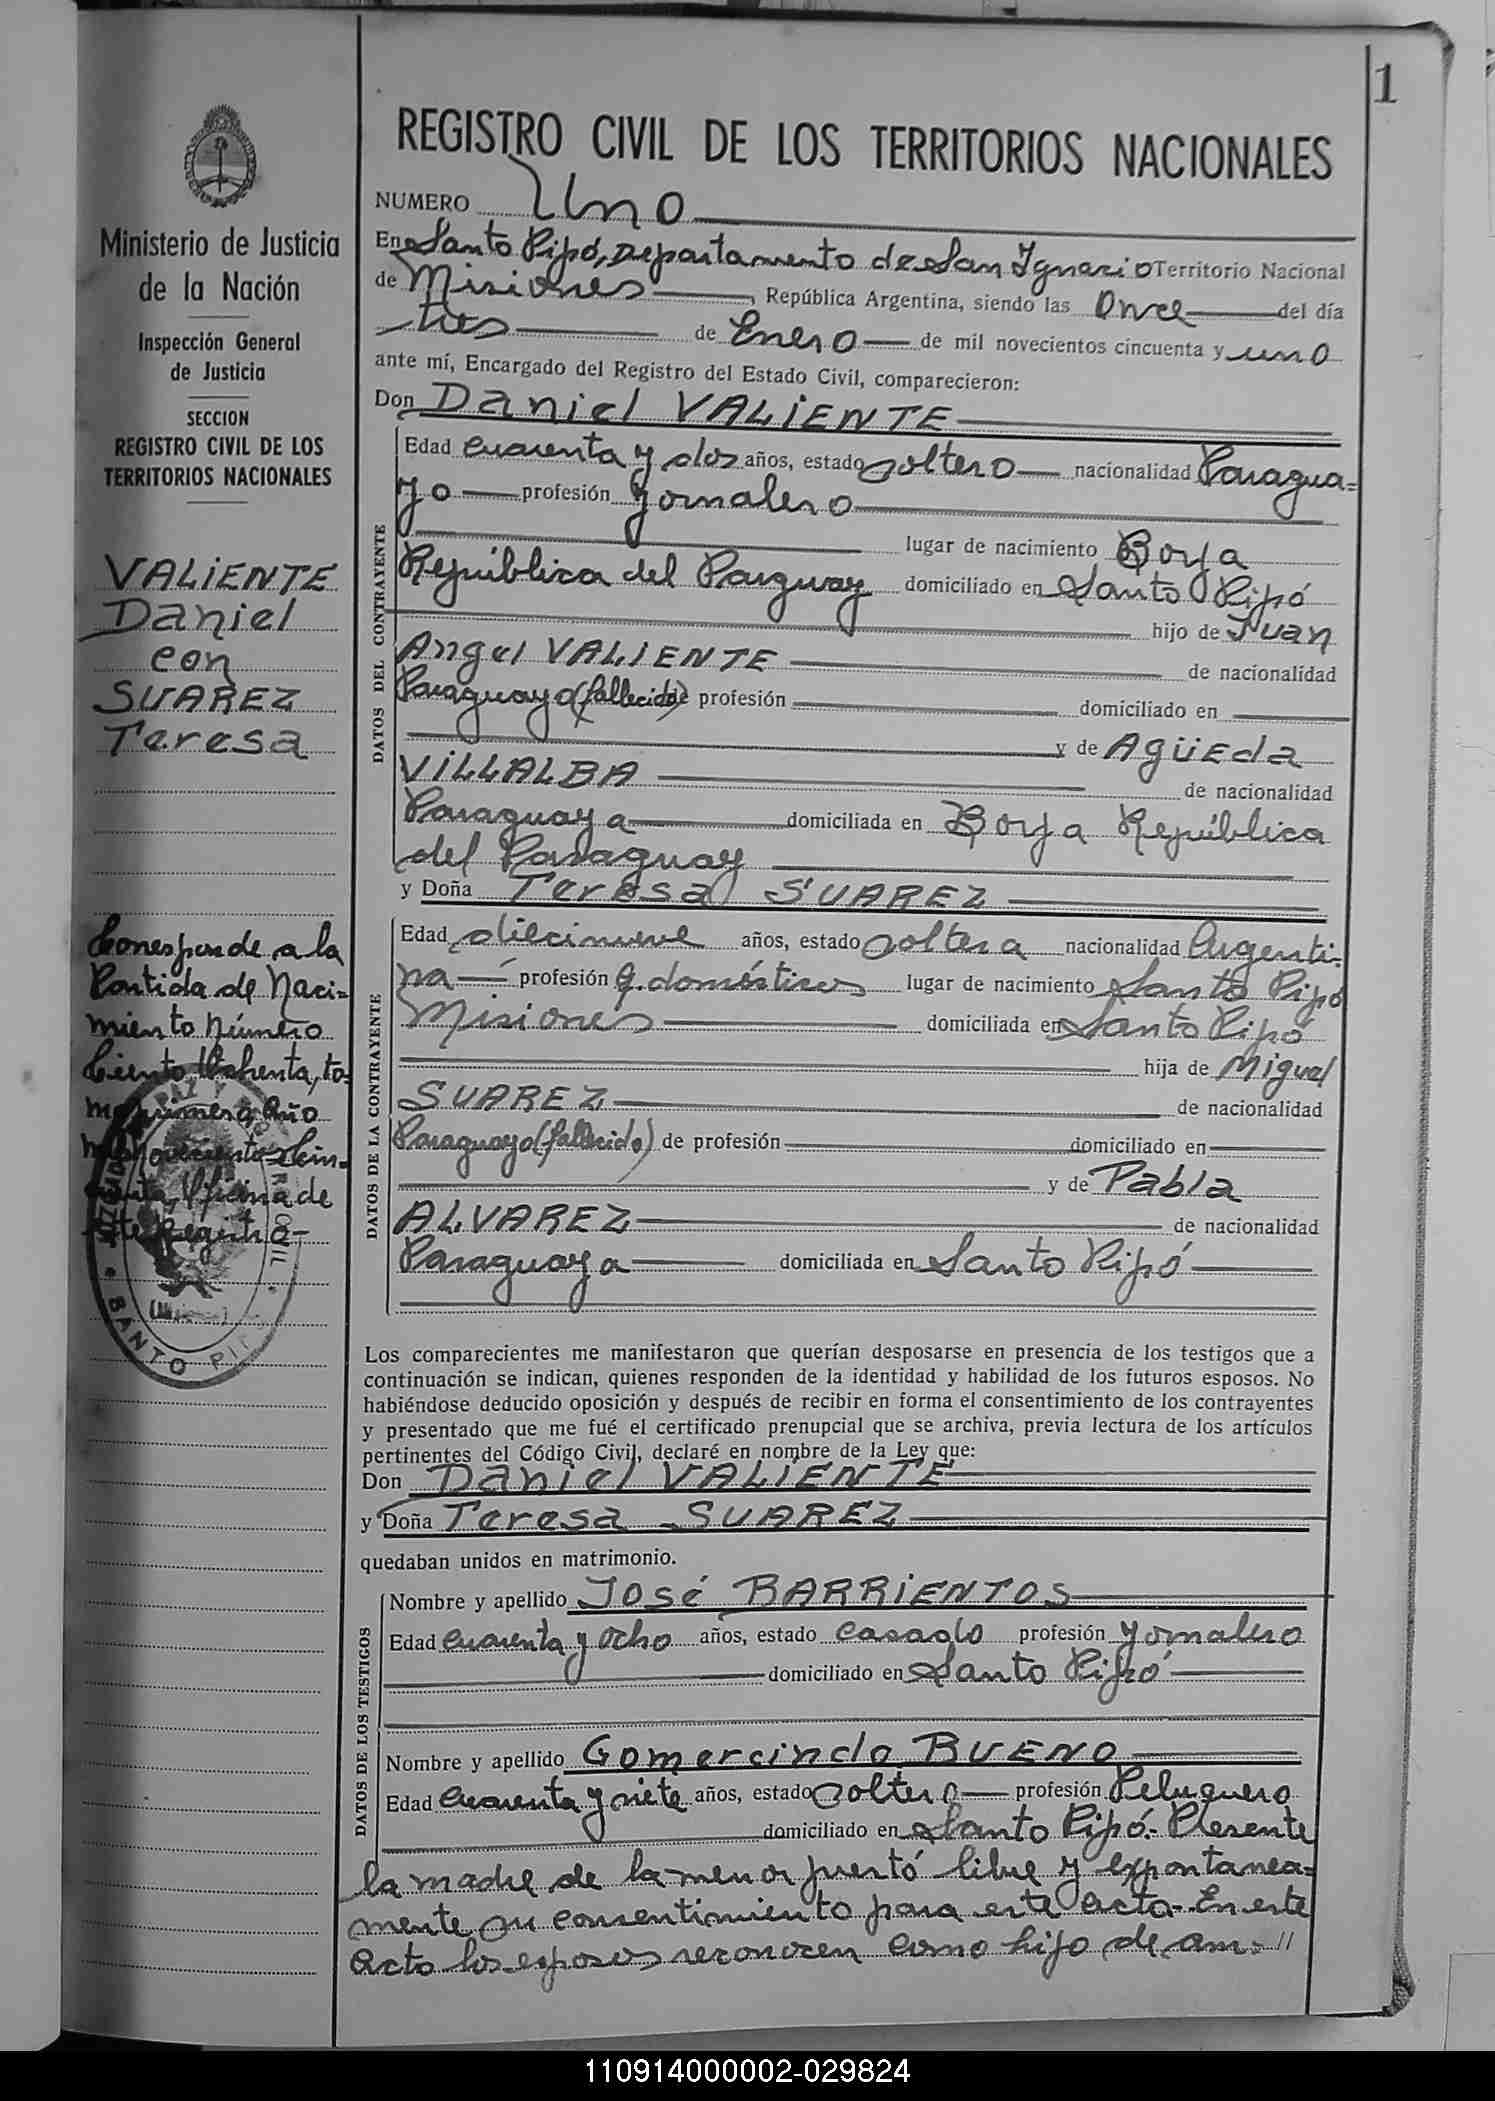 1
REGISTRO CIVIL DE LOS TERRITORIOS NACIONALES
NUMERO Uno
En Santo Pipó, Departamento de San Ygnacio Territorio Nacional
de Misiones, República Argentina, siendo las Once del día
tres de Enero de mil novecientos cincuenta y uno
ante mí, Encargado del Registro del Estado Civil, comparecieron:
Don Daniel VALIENTE
DATOS DEL CONTRAYENTE
Edad cuarenta y dos años, estado soltero nacionalidad Paragua=
yo profesión Yornalero
lugar de nacimiento Borja
República del Parguay domiciliado en Santo Pipó
hijo de Juan
Angel VALIENTE de nacionalidad
Paraguayo (fallecido) de profesión domiciliado en
y de AGÜEDA
VILLALBA de nacionalidad
Paraguaya domiciliada en Borja República
del Paraguay
y Doña Teresa SUAREZ
DATOS DE LA CONTRAYENTE
Edad diecinueve años, estado soltera nacionalidad Argenti=
na profesión Q. domésticos lugar de nacimiento Santo Pipó
Misiones domiciliada en Santo Pipó
hija de Miguel
SUAREZ de nacionalidad
Paraguayo (fallecido) de profesión domiciliado en
y de Pabla
ALVAREZ de nacionalidad
Paraguaya domiciliada en Santo Pipó
Los comparecientes me manifestaron que querían desposarse en presencia de los testigos que a
continuación se indican, quienes responden de la identidad y habilidad de los futuros esposos. No
habiéndose deducido oposición y después de recibir en forma el consentimiento de los contrayentes
y presentado que me fué el certificado prenupcial que se archiva, previa lectura de los artículos
pertinentes del Código Civil, declaré en nombre de la Ley que:
Don Daniel VALIENTE
y Doña Teresa SUAREZ
quedaban unidos en matrimonio.
DATOS DE LOS TESTIGOS
Nombre y apellido José BARRIENTOS
Edad cuarenta y ocho años, estado casado profesión Yornalero
domiciliado en Santo Pipó
Nombre y apellido Gomercindo BUENO
Edad cuarenta y siete años, estado soltero profesión Peluquero
domiciliado en Santo Pipó.- Presente
la madre de la menor prestó libre y expontanea=
mente su consentimiento para este acto.- En este
acto los esposos reconocen como hijo de am=//
Ministerio de Justicia
de la Nación
Inspección General
de Justicia
SECCION
REGISTRO CIVIL DE LOS
TERRITORIOS NACIONALES
VALIENTE
Daniel
con
SUAREZ
Teresa
Corresponde a la
Partida de Naci=
miento Número
Ciento Ochenta, to=
mo primero, Año
mil novecientos Cin=
cuenta, Oficina de
este Registro.-
SANTO PIPO
110914000002-029824